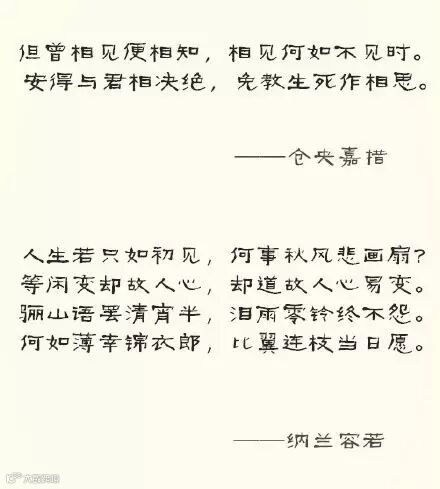 但曾相见便相知，相见何如不见时。
安得与君相决绝，免教生死作相思。
——仓央嘉措
人生若只如初见，何事秋风悲画扇？
等闲变却故人心，却道故人心易变。
骊山语罢清宵半，泪雨零铃终不怨。
何如薄幸锦衣郎，比翼连枝当日愿。
——纳兰容若